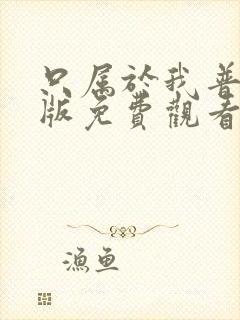 只属於我普
版免費觀看
漁魚